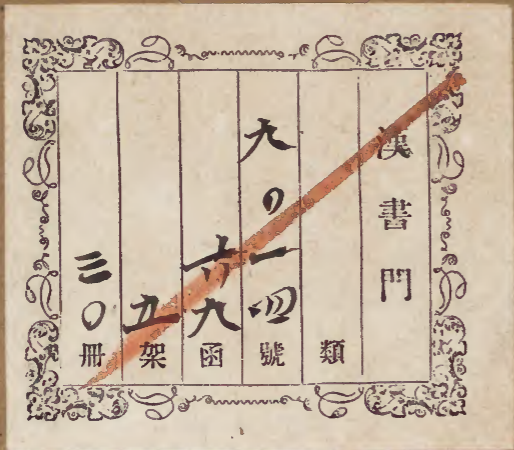 漢書門
類
九〇一四號
六九函
五架
三〇冊